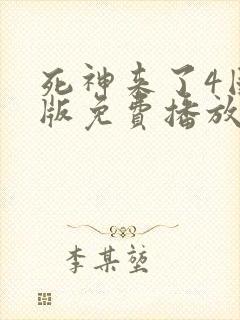 死神来了4
版免费播放
李某堃